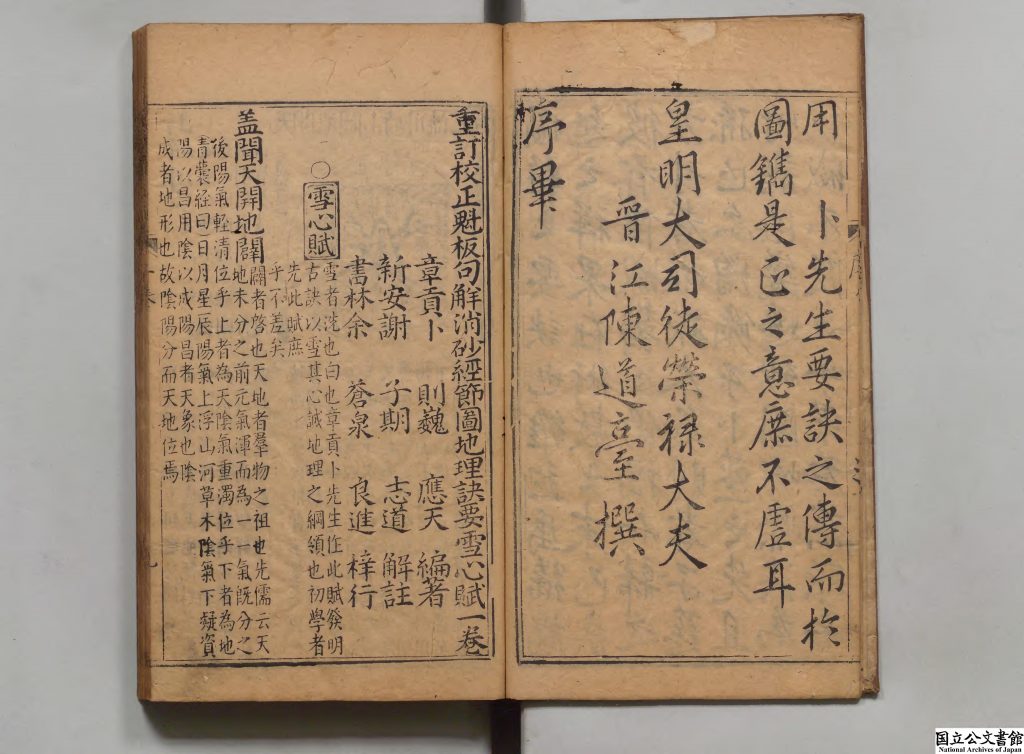 用卜先生要訣之傳而於
圖鐫是正之意庶不虛耳
皇明大司徒榮祿大夫
晉江陳道亨撰
序畢
重訂校正魁板句解消砂經節圖地理訣要雪心賦一卷
章貢卜 則巍 應天 編著
新安謝 子期 志道 解註
書林余 蒼泉 良進 梓行
○雪心賦
雪者洗也白也章貢卜先生作此賦發明
古訣以雪其心誠地理之綱領也初學者
先此賦庶
乎不差矣
盖聞天開地闢
闢者啓也天地者羣物之祖也先儒云天
地未分之前元氣渾而為一一氣旣分之
後陽氣輕清位乎上者為天陰氣重濁位乎下者為地
青囊経曰日月星辰陽氣上浮山河草木陰氣下凝資
陽以昌用陰以成陽昌者天象也陰
成者地形也故陰陽分而天地位焉
国立公文書館
National Archives of Japan